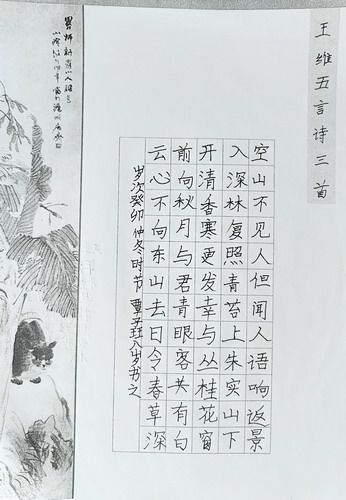 王维五言诗三首
空山不见人但闻人语响返景
入深林复照青苔上朱实山下
开清香寒更发幸与丛桂花窗
前向秋月与君青眼客共有白
云心不向东山去日令春草深
岁次癸卯仲冬时节 覃子八岁书之